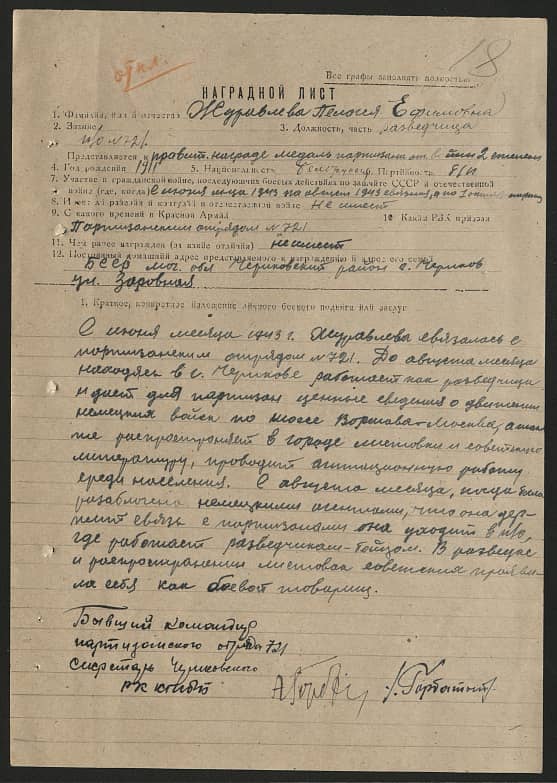 откл.
18
Все графы заполнять полностью
НАГРАДНОЙ ЛИСТ
1. Фамилия, имя и отчество Журавлева Пелогея Ефимовна
2. Звание 3. Должность, часть разведчица
п/о N 721
Представляется к правит. награде медаль партизан отв. в-ны 2 степени
4. Год рождения 1911 5. Национальность 6. Партийность б/п
7. Участие в гражданской войне, последующих боевых действиях по защите СССР и отечественной
войне (где, когда) С июня м-ца 1943 по август 1943 связная,
8. Имеет ли ранения и контузии в отечественной войне Не имеет
9. С какого времени в Красной Армии 10 Каким РВК призван
Партизанским отрядом N 721
11. Чем ранее награжден (за какие отличия) не имеет
12. Постоянный домашний адрес представляемого к награждению и адрес его семьи
БССР мог. обл Чериковский район г. Чериков
ул. Заровная
1. Краткое, конкретное изложение личного боевого подвига или заслуг
С июня месяца 1943 г. Журавлева связалась с
партизанским отрядом N 721. До августа месяца
находясь в г. Черикове работает как разведчица
и дает для партизан ценные сведения о движении
немецких войск по шоссе Варшава-Москва, а так
же распространяет в городе листовки и советскую
литературу, проводит агитационную работу
среди населения. С августа месяца, когда была
разаблочена немецкими агентами, что она дер-
жит связь с партизанами она уходит в п/о,
где работает разведчикам-бойцом. В разведке
и распространении листовок советских прояви-
ла себя как боевой товарищ.
Бывший командир
партизанского отряда 721
секретарь Чериковского
РК КП(б)Б
/. Горбатит